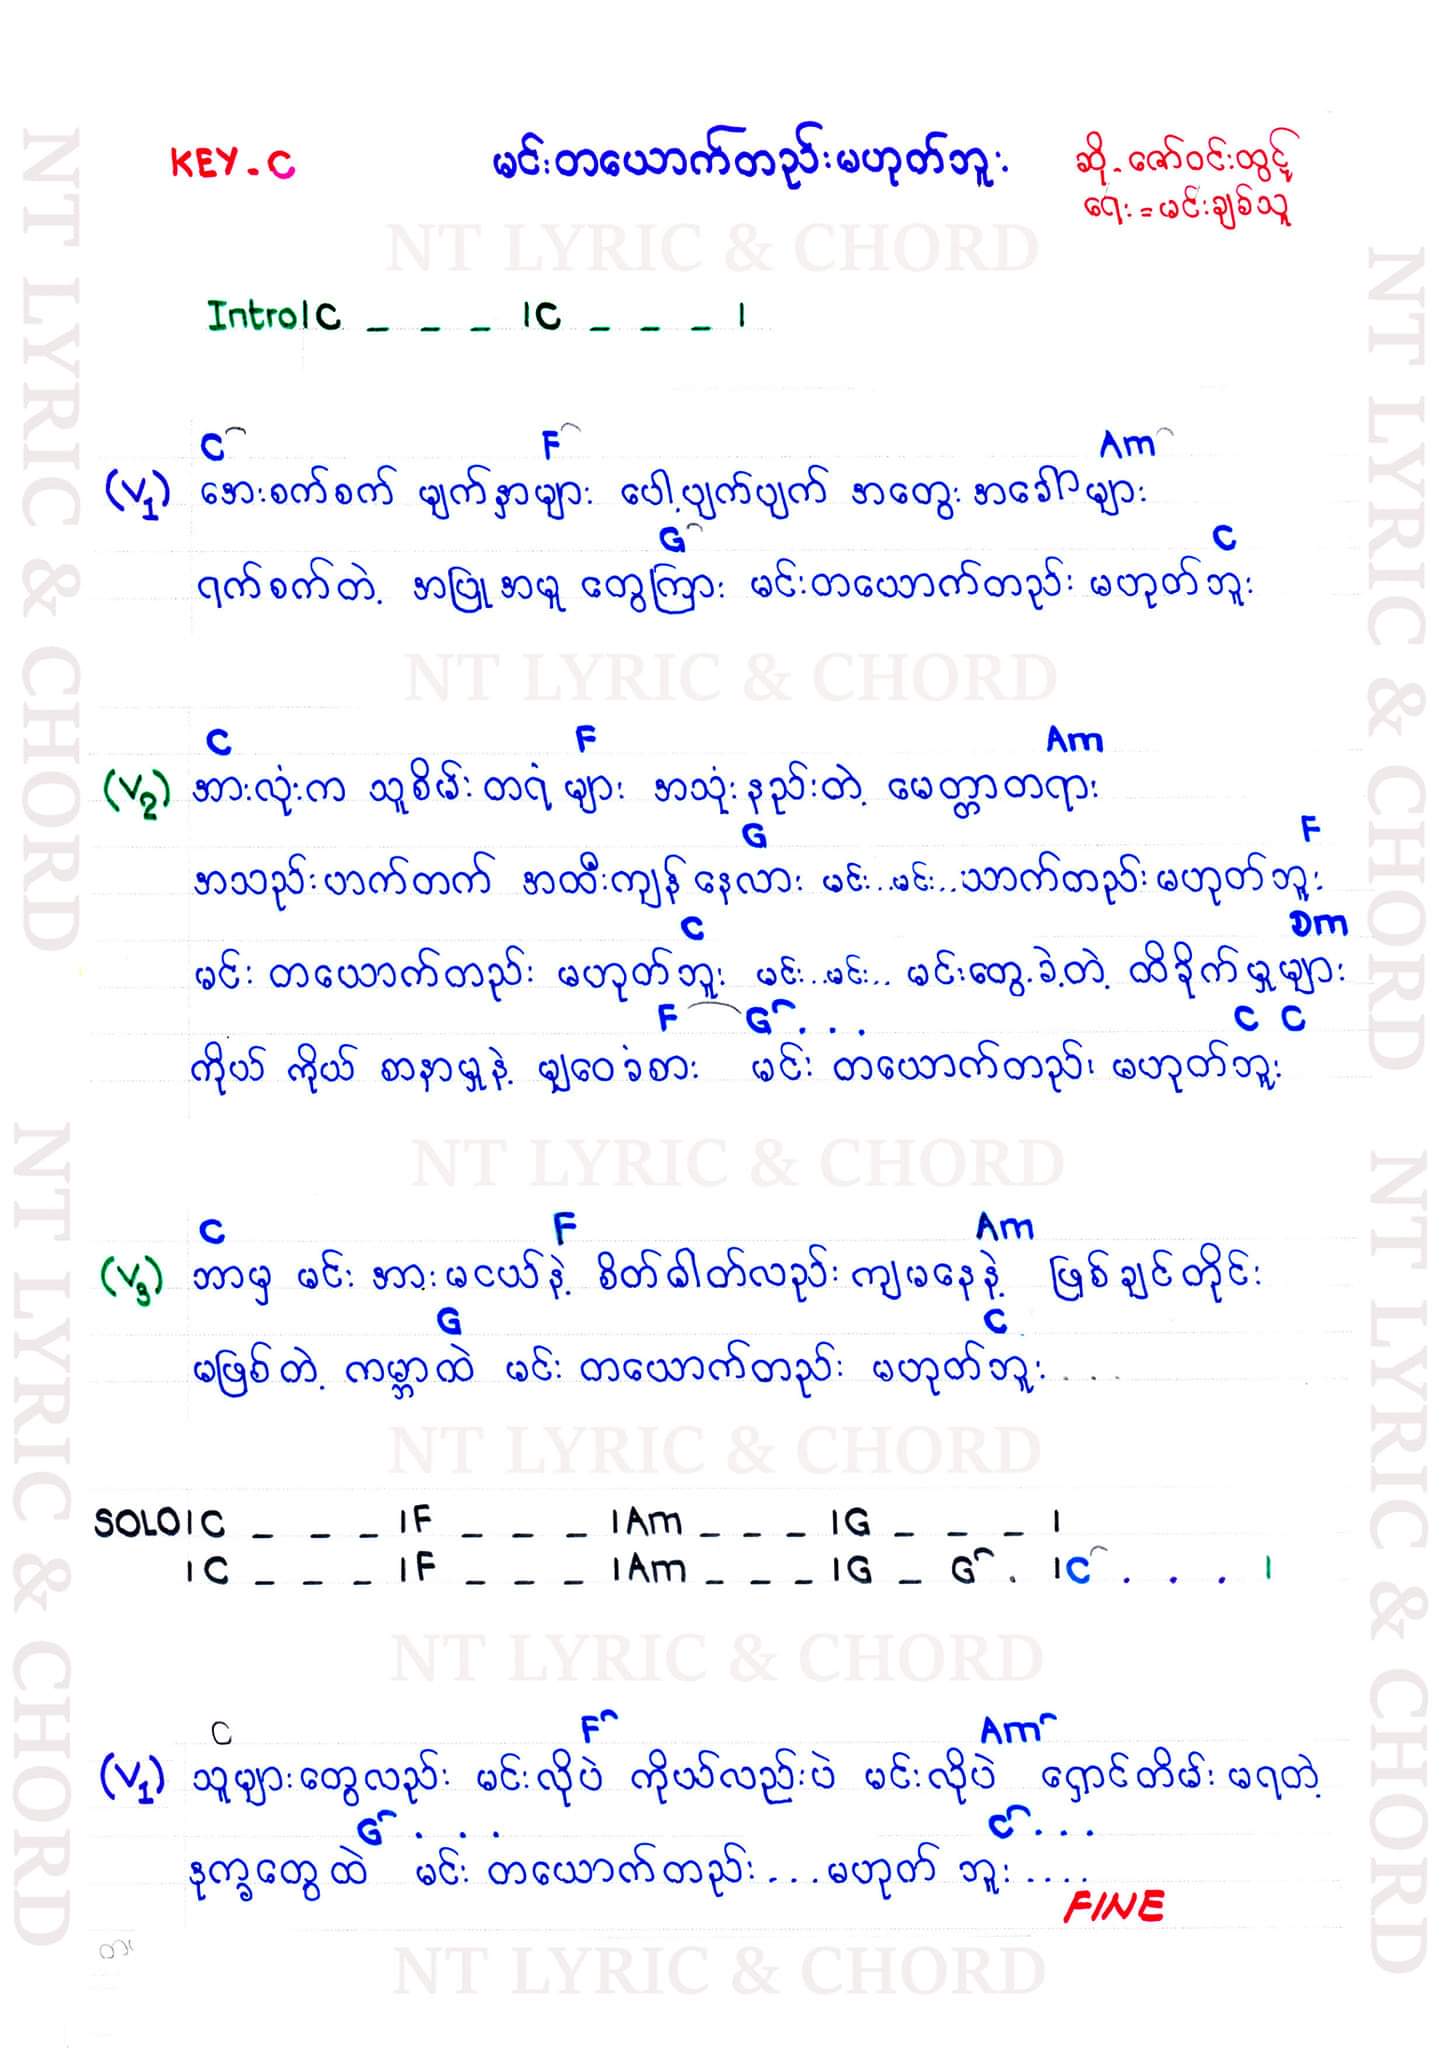 KEY-C မင်းတယောက်တည်းမဟုတ်ဘူး ဆို-ဇော်ဝင်းထွင့်
ရေး=မင်းချစ်သူ
NT LYRIC & CHORD
Intro|C _ _ _ |C _ _ _ |
C F Am
(V1) အေးစက်စက် မျက်နှာများ ပေါ့ပျက်ပျက် အတွေးအခေါ်များ
G C
ရက်စက်တဲ့ အပြုအမူ တွေကြား မင်းတယောက်တည်း မဟုတ်ဘူး
NT LYRIC & CHORD
C F Am
(V2) အားလုံးက သူစိမ်းတရံများ အသုံးနည်းတဲ့ မေတ္တာတရား
G F
အသည်းဟက်တက် အထီးကျန်နေလား မင်း..မင်း..ယောက်တည်းမဟုတ်ဘူး
C Dm
မင်း တယောက်တည်း မဟုတ်ဘူး မင်း..မင်း.. မင်းတွေ့ခဲ့တဲ့ ထိခိုက်မှုများ
F G... C C
ကိုယ် ကိုယ် စာနာမှုနဲ့ မျှဝေခံစား မင်း တယောက်တည်း မဟုတ်ဘူး
NT LYRIC & CHORD
C F Am
(V3) ဘာမှ မင်း အားမငယ်နဲ့ စိတ်ဓါတ်လည်းကျမနေနဲ့ ဖြစ်ချင်တိုင်း
G C
မဖြစ်တဲ့ ကမ္ဘာထဲ မင်း တယောက်တည်း မဟုတ်ဘူး....
NT LYRIC & CHORD
SOLO|C _ _ _ |F _ _ _ |Am _ _ _ |G _ _ _ |
|C _ _ _ |F _ _ _ |Am _ _ _ |G _ G . |C . . . |
NT LYRIC & CHORD
C F Am
(V1) သူများတွေလည်း မင်းလိုပဲ ကိုယ်လည်းပဲ မင်းလိုပဲ ရှောင်တိမ်းမရတဲ့
G... C...
ဒုက္ခတွေထဲ မင်း တယောက်တည်း...မဟုတ် ဘူး....
FINE
NT LYRIC & CHORD
NT LYRIC & CHORD
NT LYRIC & CHORD
NT LYRIC & CHORD
NT LYRIC & CHORD